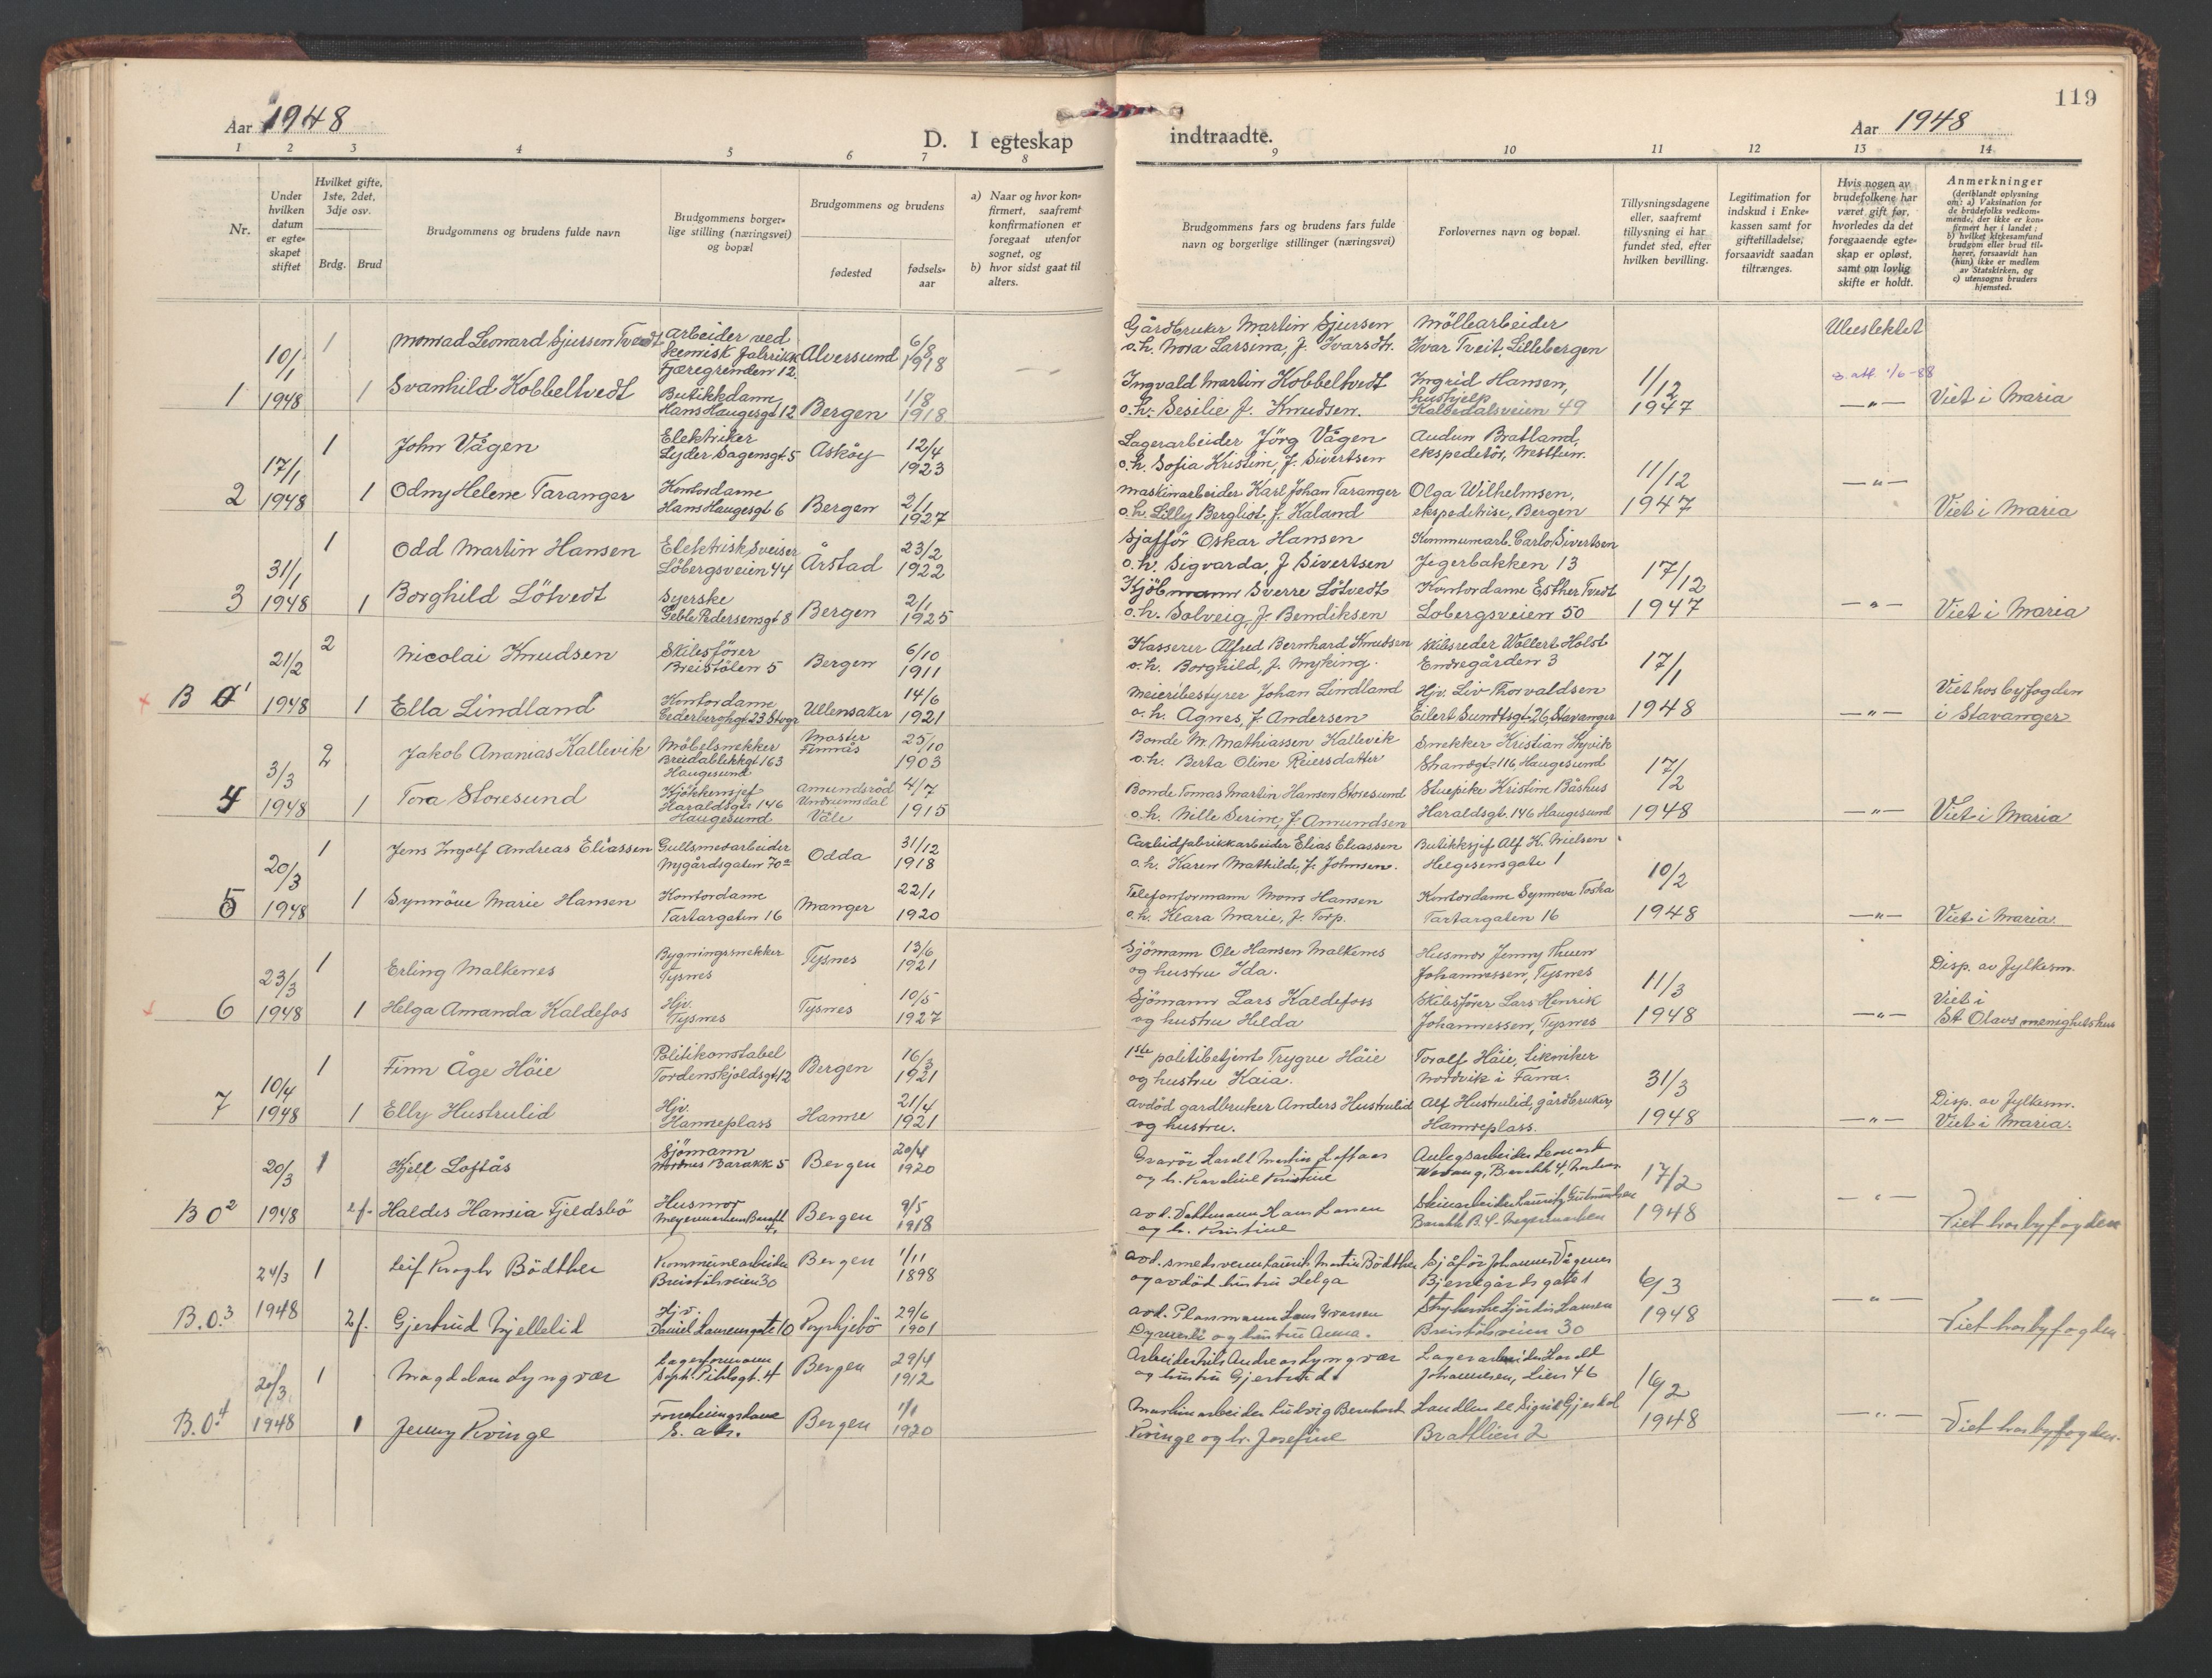 119
Aar 1948
D. I egteskap
indtraadte.
Aar 1948
1 2 3 4 5 6 7 8 9 10 11 12 13 14
Nr.
Under hvilken datum er egteskapet stiftet
Hvilket gifte, 1ste, 2det, 3dje osv.
Brdg. Brud
Brudgommens og brudens fulde navn
Brudgommens borgerlige stilling (næringsvei) og bopæl
Brudgommens og brudens
fødested
fødselsaar
a) Naar og hvor konfirmert, saafremt konfirmationen er foregaat utenfor sognet, og
b) hvor sidst gaat til alters.
Brudgommens fars og brudens fars fulde navn og borgerlige stillinger (næringsvei)
Forlovernes navn og bopæl.
Tillysningsdagene eller, saafremt tillysning ei har fundet sted, efter hvilken bevilling.
Legitimation for indskud i Enkekassen samt for giftetilladelse, forsaavidt saadan tiltrænges.
Hvis nogen av brudefolkene har været gift før, hvorledes da det foregaaende egteskap er opløst, samt om lovlig skifte er holdt.
Anmerkninger
(deriblandt oplysning om: a) Vaksination for de brudefolks vedkommende, der ikke er konfirmert her i landet; b) hvilket kirkesamfund brudgom eller brud tilhører, forsaavidt han (hun) ikke er medlem av Statskirken, og c) utensogns bruders hjemsted.
1 10/1 1948
1 Monrad Leonard Sjursen Tvedt
Arbeider ved Kemisk Fabrikk Fjæregrenden 12. Alversund 6/8 1918
Gårdbruker Martin Sjursen o.h. Nora Larsina, f. Ivarsdtr.
Møllearbeider Ivar Tveit, Lillebergen
Uleslektet
1 Svanhild Kobbeltvedt
Butikkdame Hans Haugesgt 12 Bergen 1/8 1918
Ingvald Martin Kobbeltvedt o.h. Sesilie f. Knudsen.
Ingrid Hansen, hushjelp Kalvedalsveien 49
1/12 1947
s. att. 1/6-88
—"— Viet i Maria
2 17/1 1948
1 John Vågen
Elektriker Lyder Sagensgt. 5 Askøy 12/4 1923
Lagerarbeider Jörg Vågen o.h. Sofia Kristine, f. Sivertsen
Audun Bratland, ekspeditör, Nesttun.
1 Odny Helene Taranger
Kontordame Hans Haugesgt 6 Bergen 2/1 1927
Maskinarbeider Karl Johan Taranger o.h. Lilly Bergliot, f. Kaland
Olga Wilhelmsen, ekspeditrise, Bergen
11/12 1947 —"— Viet i Maria
3 31/1 1948
1 Odd Martin Hansen
Elektrisk Sveiser Löbergsveien 44 Årstad 23/2 1922
Sjafför Oskar Hansen o.h. Sigvarda, f Sivertsen
Kommunearb. Carlo Sivertsen Jegerbakken 13
1 Borghild Lötvedt
Syerske Geble Pedersensgt 8 Bergen 2/1 1925
Kjöbmann Sverre Lötvedt o.h. Solveig, f. Bendiksen
Kontordame Esther Tvedt Lobergsveien 50
17/12 1947 —"— Viet i Maria
B 0 1 21/2 1948
2 Nicolai Knudsen
Skibsförer Breistölen 5 Bergen 6/10 1911
Kasserer Alfred Bernhard Knudsen o.h. Borghild, f. Myking.
Skibsreder Wollert Holst Endregården 3
1 Ella Lindland
Kontordame Cederberghgt. 23 Stvgr Ullensaker 14/6 1921
Meieribestyrer Johan Lindland o.h. Agnes, f. Andersen
Hjv. Liv Thorvaldsen Eilert Sundtsgt. 26, Stavanger
17/1 1948 —"— Viet hos byfogden i Stavanger
4 3/3 1948
2 Jakob Ananias Kallevik
Möbelsnekker Breidablikkgt 163 Haugesund Moster Finnås 25/10 1903
Bonde M. Mathiassen Kallevik o.h. Berta Oline Reiersdatter
Snekker Kristian Hyvik Strandgt. 116, Haugesund
1 Tora Storesund
Kjökkensjef Haraldsgt 146 Haugesund Amundsröd Våle 4/7 1915
Bonde Tomas Martin Hansen Storesund o.h. Nille Serine, f. Amundsen
Stuepike Kristine Båshus Haraldsgt. 146 Haugesund
17/2 1948 —"— Viet i Maria
5 20/3 1948
1 Jens Ingolf Andreas Eliassen
Gullsmedarbeider Nygårdsgaten 70a Odda 31/12 1918
Carbidfabrikkarbeider Elias Eliassen o.h. Karen Mathilde, f. Johnsen.
Butikksjef Alf K. Nielsen Helgesensgate 1
1 Synnöve Marie Hansen
Kontordame Tartargaten 16 Manger 22/1 1920
Telefonformann Mons Hansen o.h. Klara Marie, f. Torp.
Kontordame Synneva Toska Tartargaten 16
10/2 1948 —"— Viet i Maria.
6 23/3 1948
1 Erling Malkenes
Bygningssnekker Tysnes Tysnes 13/6 1921
Sjömann Ole Hansen Malkenes og hustru Ida.
Husmor Jenny Thuen Johannessen, Tysnes
1 Helga Amanda Kaldefos
Hjv. Tysnes Tysnes 10/5 1927
Sjömann Lars Kaldefoss og hustru Hilda
Skibsförer Lars Henrik Johannessen, Tysnes
11/3 1948 —"— Disp. av fylkesm. Viet i St Olavs menighetshus
7 10/4 1948
1 Finn Åge Höie
Politikonstabel Tordenskjoldsgt. 12 Bergen 16/3 1921
1ste politibetjent Trygve Höie og hustru Kaia.
Toralf Höie, tekniker Nordvik i Fana.
1 Elly Hustrulid
Hjv. Hamreplass Hamre 21/4 1921
Avdöd gardbruker Anders Hustrulid og hustru.
Alf Hustrulid, gårdbruker, Hamreplass.
31/3 1948 —"— Disp. av fylkesm. Viet i Maria.
B 0 2 20/3 1948
1 Kjell Loftås
Sjömann Nordnes Barakk 5 Bergen 20/4 1920
Martin Loftaas og h. Karoline Kristine
Anlegsarbeider Barakk 4,
2 f. Haldis Hansia Fjeldsbö
Husmor Meyermarken Barakk 4, Bergen 9/5 1918
avd. Hans Larsen og h. Kristine
Barakk B. 4. Meyermarken
17/2 1948 —"— Viet hos byfogden
B.O.3 24/3 1948
1 Leif Krogh Bödtker
Kommunearbeider Breistölsveien 30 Bergen 1/11 1898
avd. smedsvenn Laurits Martin Bödtker og avdöd hustru Helga
Sjåför Johannes Vågenes Bjerregårdsgate 1
2 f. Gjertrud Hjellelid
Hjv. Daniel Hansensgate 10 Kyrkjebö 29/6 1901
avd. Plassmann og hustru Anna.
Breistölsveien 30
6/3 1948 —"— Viet hos byfogden.
B.O.4 20/3 1948
1 Magdalon Lyngvær
Lagerformann Soph. Pihlsgt. 4 Bergen 29/4 1912
Arbeider Nils Andreas Lyngvær og hustru Gjertrud.
Lagerarbeider Harald Johannesen, Lien 46
1 Jenny Kvinge
Forretningsdame S. a h. Bergen 1/1 1920
Maskinarbeider Ludvig Bernhard Kvinge og h. Josefine
Brattlien 2
16/2 1948 —"— Viet hos byfogden.